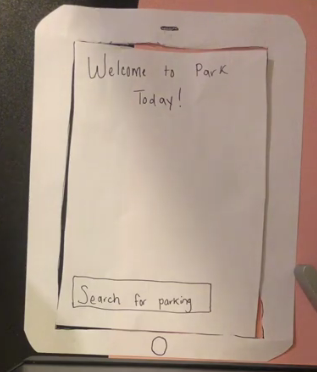 Welcome to Park
Today!
Search for parking